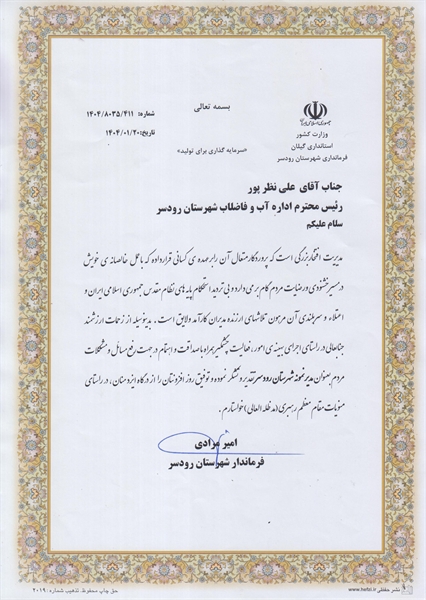 بسمه تعالی
شماره: ۱۴۰۴/۸۰۳۵/۴۱۱
تاریخ: ۱۴۰۴/۰۱/۲۰
«سرمایه گذاری برای تولید»
جمهوری اسلامی ایران
وزارت کشور
استانداری گیلان
فرمانداری شهرستان رودسر
جناب آقای علی نظر پور
رئیس محترم اداره آب و فاضلاب شهرستان رودسر
سلام علیکم
مدیریت افتخار بزرگی است که پروردگار متعال آن را بر عهده ی کسانی قرار داده که با عمل خالصانه ی خویش
در مسیر خشنودی و رضایت مردم گام بر می دارد و بی تردید استحکام پایه های نظام مقدس جمهوری اسلامی ایران و
اعتلاء و سربلندی آن مرهون تلاشهای ارزنده مدیران کارآمد و لایق است. بدینوسیله از زحمات ارزشمند
جنابعالی در راستای اجرای بهینه ی امور، فعالیت چشمگیر همراه با صداقت و اهتمام در جهت رفع مسائل و مشکلات
مردم بعنوان مدیر نمونه شهرستان رودسر تقدیر و تشکر نموده و توفیق روز افزونتان را از درگاه ایزد منان، در راستای
منویات مقام معظم رهبری (مدظله العالی) خواستارم.
امیر مرادی
فرماندار شهرستان رودسر
نشر حفظی www.hefzi.ir
حق چاپ محفوظ. تذهیب شماره: ۲۰۱۹